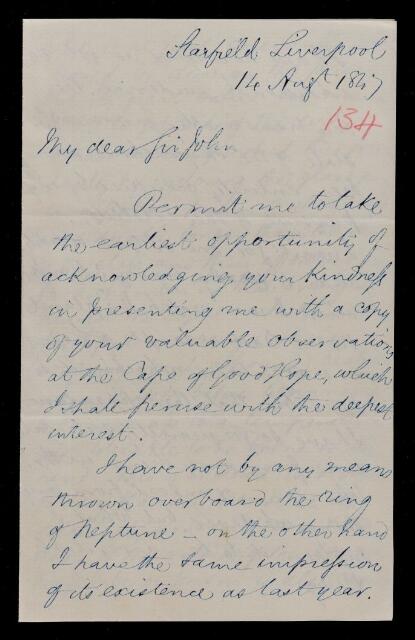 Starfield Liverpool
14 Augt 1847
134
My dear Sir John
Permit me to take
the earliest opportunity of
acknowledging your kindness
in presenting me with a copy
of your valuable observations
at the Cape of Good Hope, which
I shall peruse with the deepest
interest.
I have not by any means
thrown overboard the ring
of Neptune – on the other hand
I have the same impression
of its existence as last year.